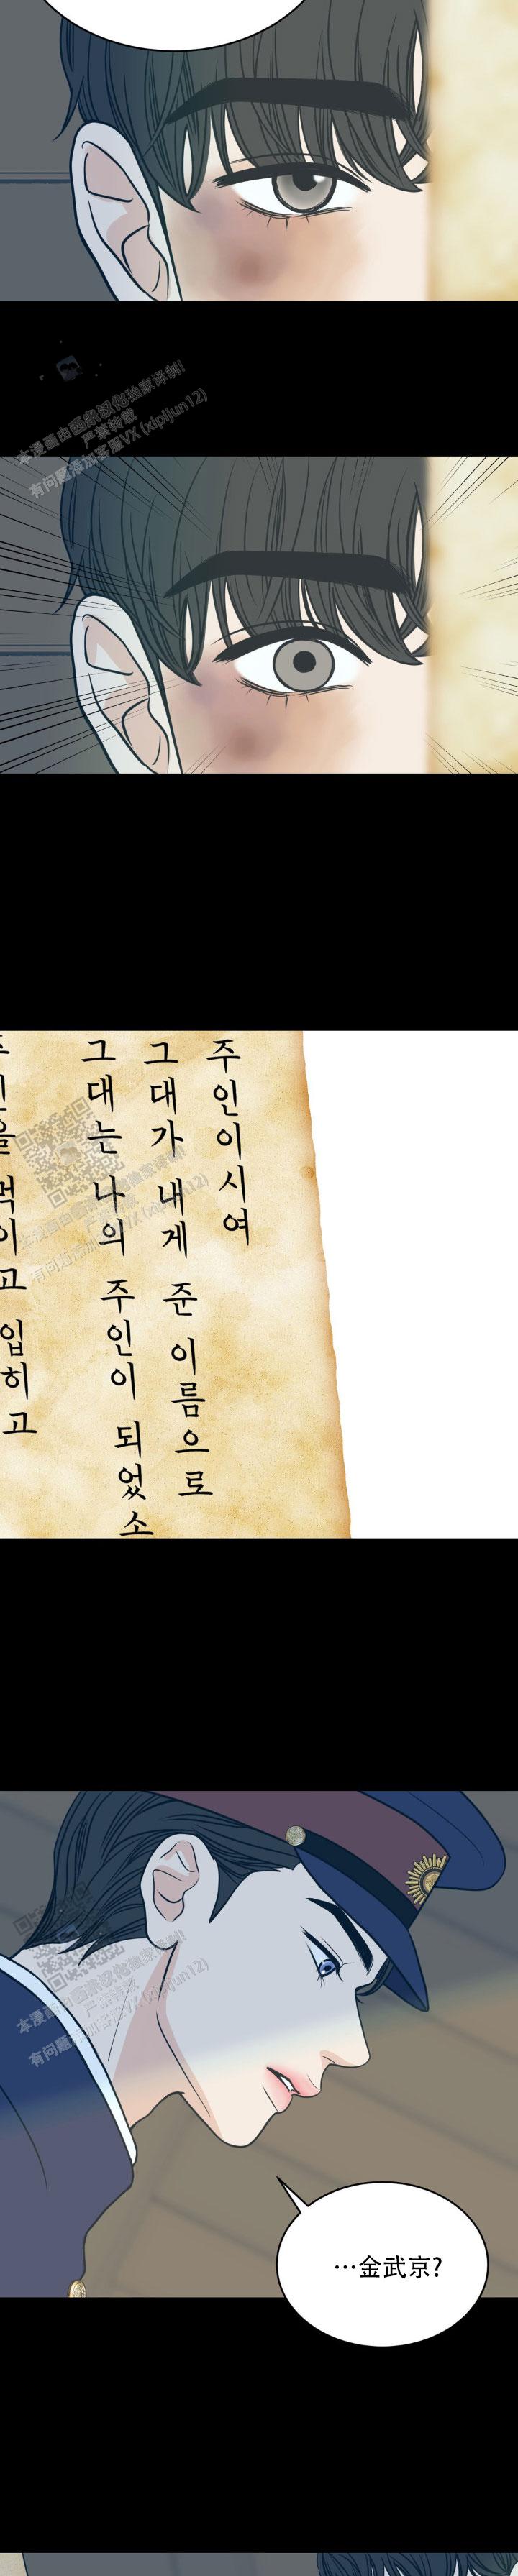 本漫画由图术汉化独家译制!
严禁转载
有问题添加客服VX(xlpljun12)
주인이시여
그대가 내게 준 이름으로
그대는 나의 주인이 되었소
을 먹이고 입히고
本漫画由
严禁转载
有问题添加客服VX(xlpljun12)
本漫画由
独家译制!
严禁转载
有问题添加客服VX(xlpljun12)
…金武京?